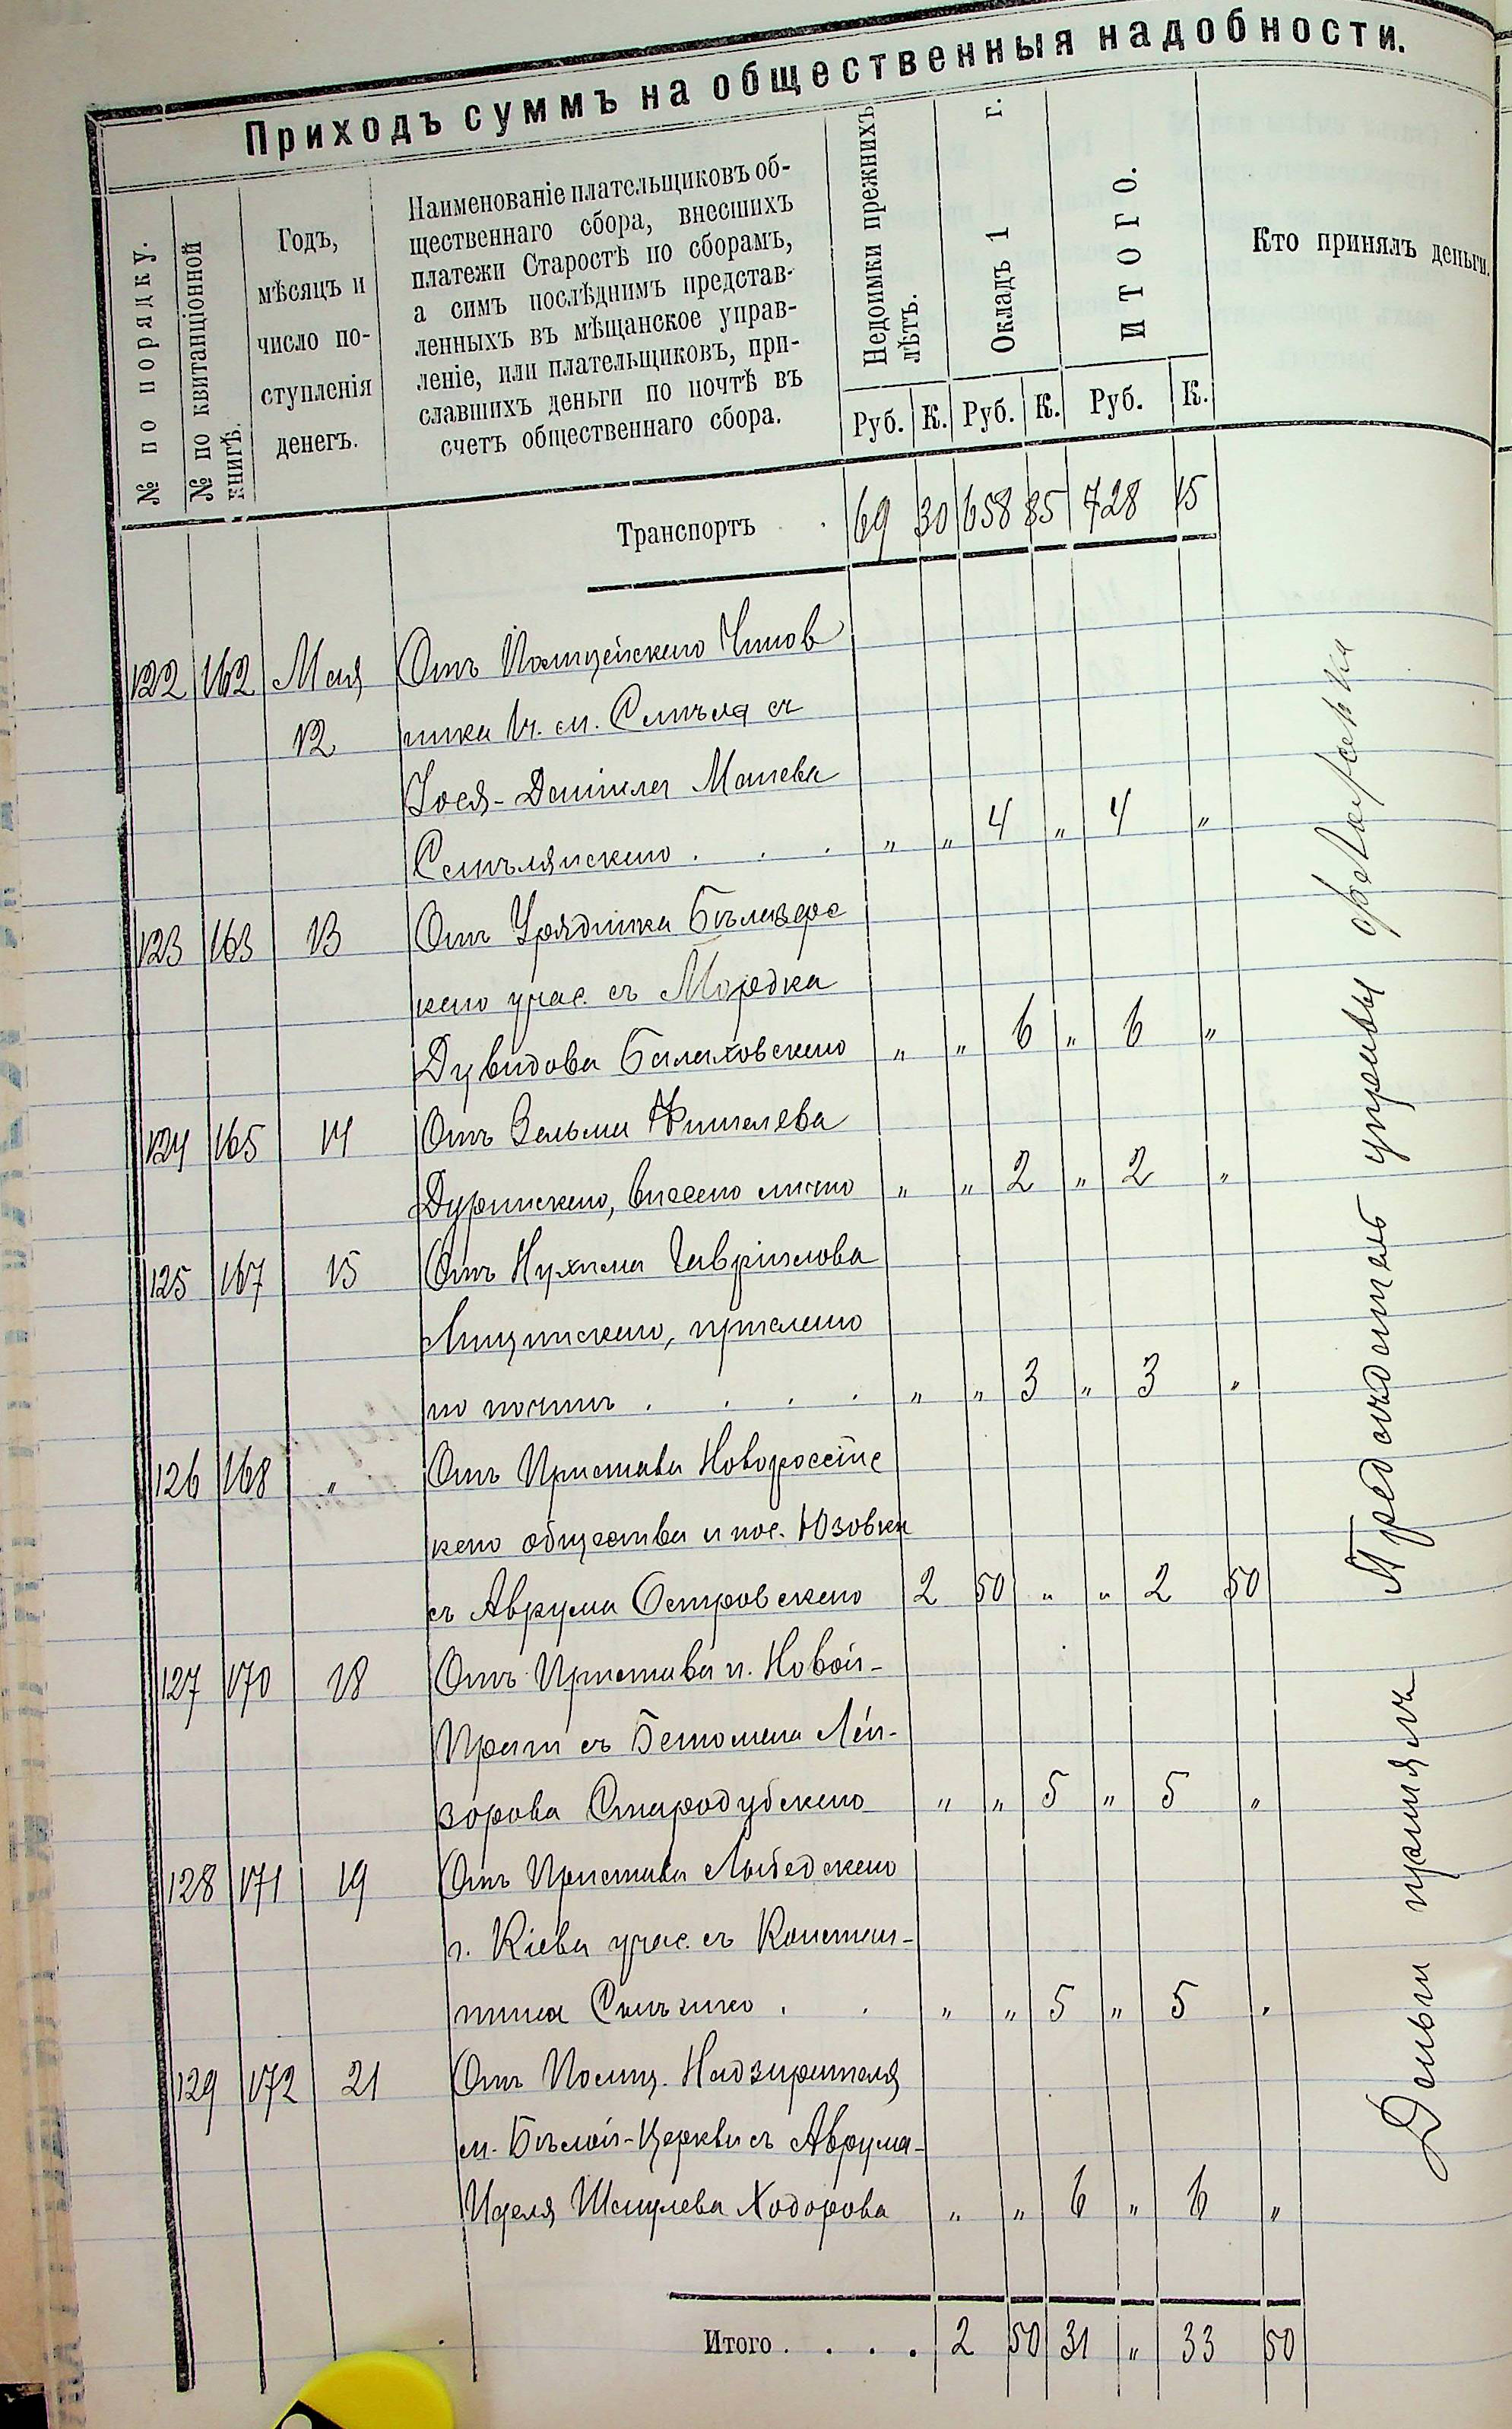 Приходъ суммъ на общественныя надобности.
№ по порядку.
№ по квитанціонной
книгѣ.
Годъ,
мѣсяцъ и
число по-
ступленія
денегъ.
Наименованіе плательщиковъ об-
щественнаго сбора, внесшихъ
платежи Старостѣ по сборамъ,
а симъ послѣднимъ представ-
ленныхъ въ мѣщанское управ-
леніе, или плательщиковъ, при-
славшихъ деньги по почтѣ въ
счетъ общественнаго сбора.
Недоимки прежнихъ
лѣтъ.
Окладъ 1 г.
ИТОГО.
Кто принялъ деньги.
Руб. К. Руб. К. Руб. К.
Транспортъ . . 69 30 658 85 728 15
122 162 Мая Отъ Полицейскаго Чинов
12 ника м. Смѣла съ
Іося-Даніила Мошева
Смѣлянскаго . . . „ „ 4 „ 4 „
123 163 13 Отъ Урядника
каго учас. съ Мордка
Дувидова Балаховскаго „ „ 6 „ 6 „
124 165 14 Отъ Зельмы Фишелева
Дуринскаго, внесено лично „ „ 2 „ 2 „
125 167 15 Отъ Нухима Гавриілова
Лищинскаго, прислано
по почтѣ . . . . „ „ 3 „ 3 „
126 168 „ Отъ Пристава Новороссійс
каго общества и пос. Юзовки
съ Аврума Островскаго 2 50 „ „ 2 50
127 170 18 Отъ Пристава п. Новой-
Праги съ Лей-
зорова Стародубскаго „ „ 5 „ 5 „
128 171 19 Отъ Пристава Лыбедскаго
г. Кіева учас. съ Констан-
тина . . „ „ 5 „ 5 „
129 172 21 Отъ Полиц. Надзирателя
м. Бѣлой-Церкви съ Аврума-
Иделя Шмулева Ходорова „ „ 6 „ 6 „
Итого . . . . 2 50 31 „ 33 50
Деньги принялъ Предсѣдатель управы